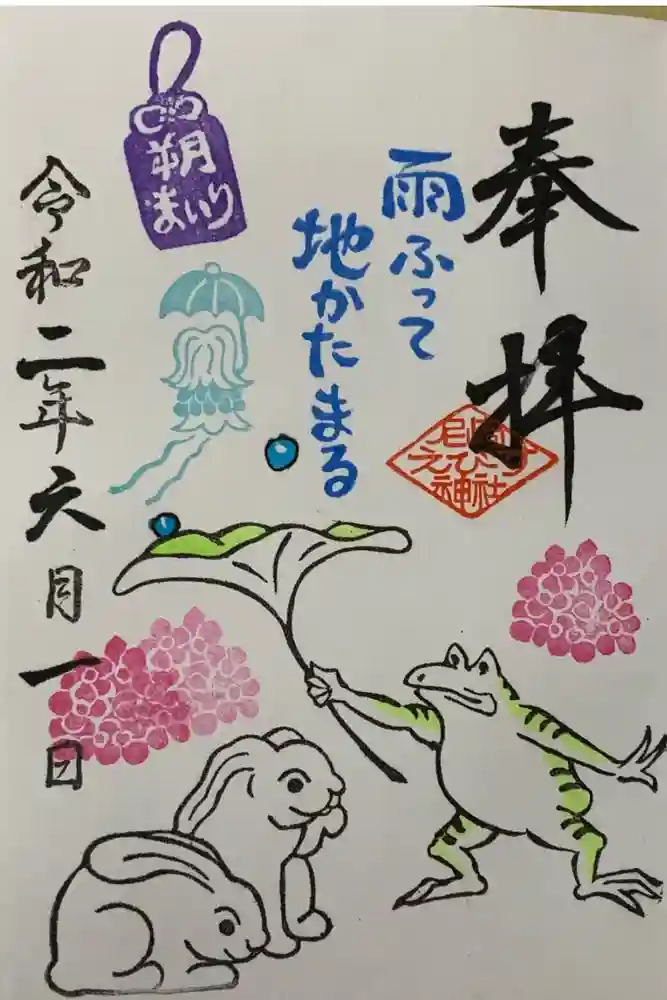 奉拝
雨ふって
地かたまる
朔
まいり
えびす神社
令和二年六月一日